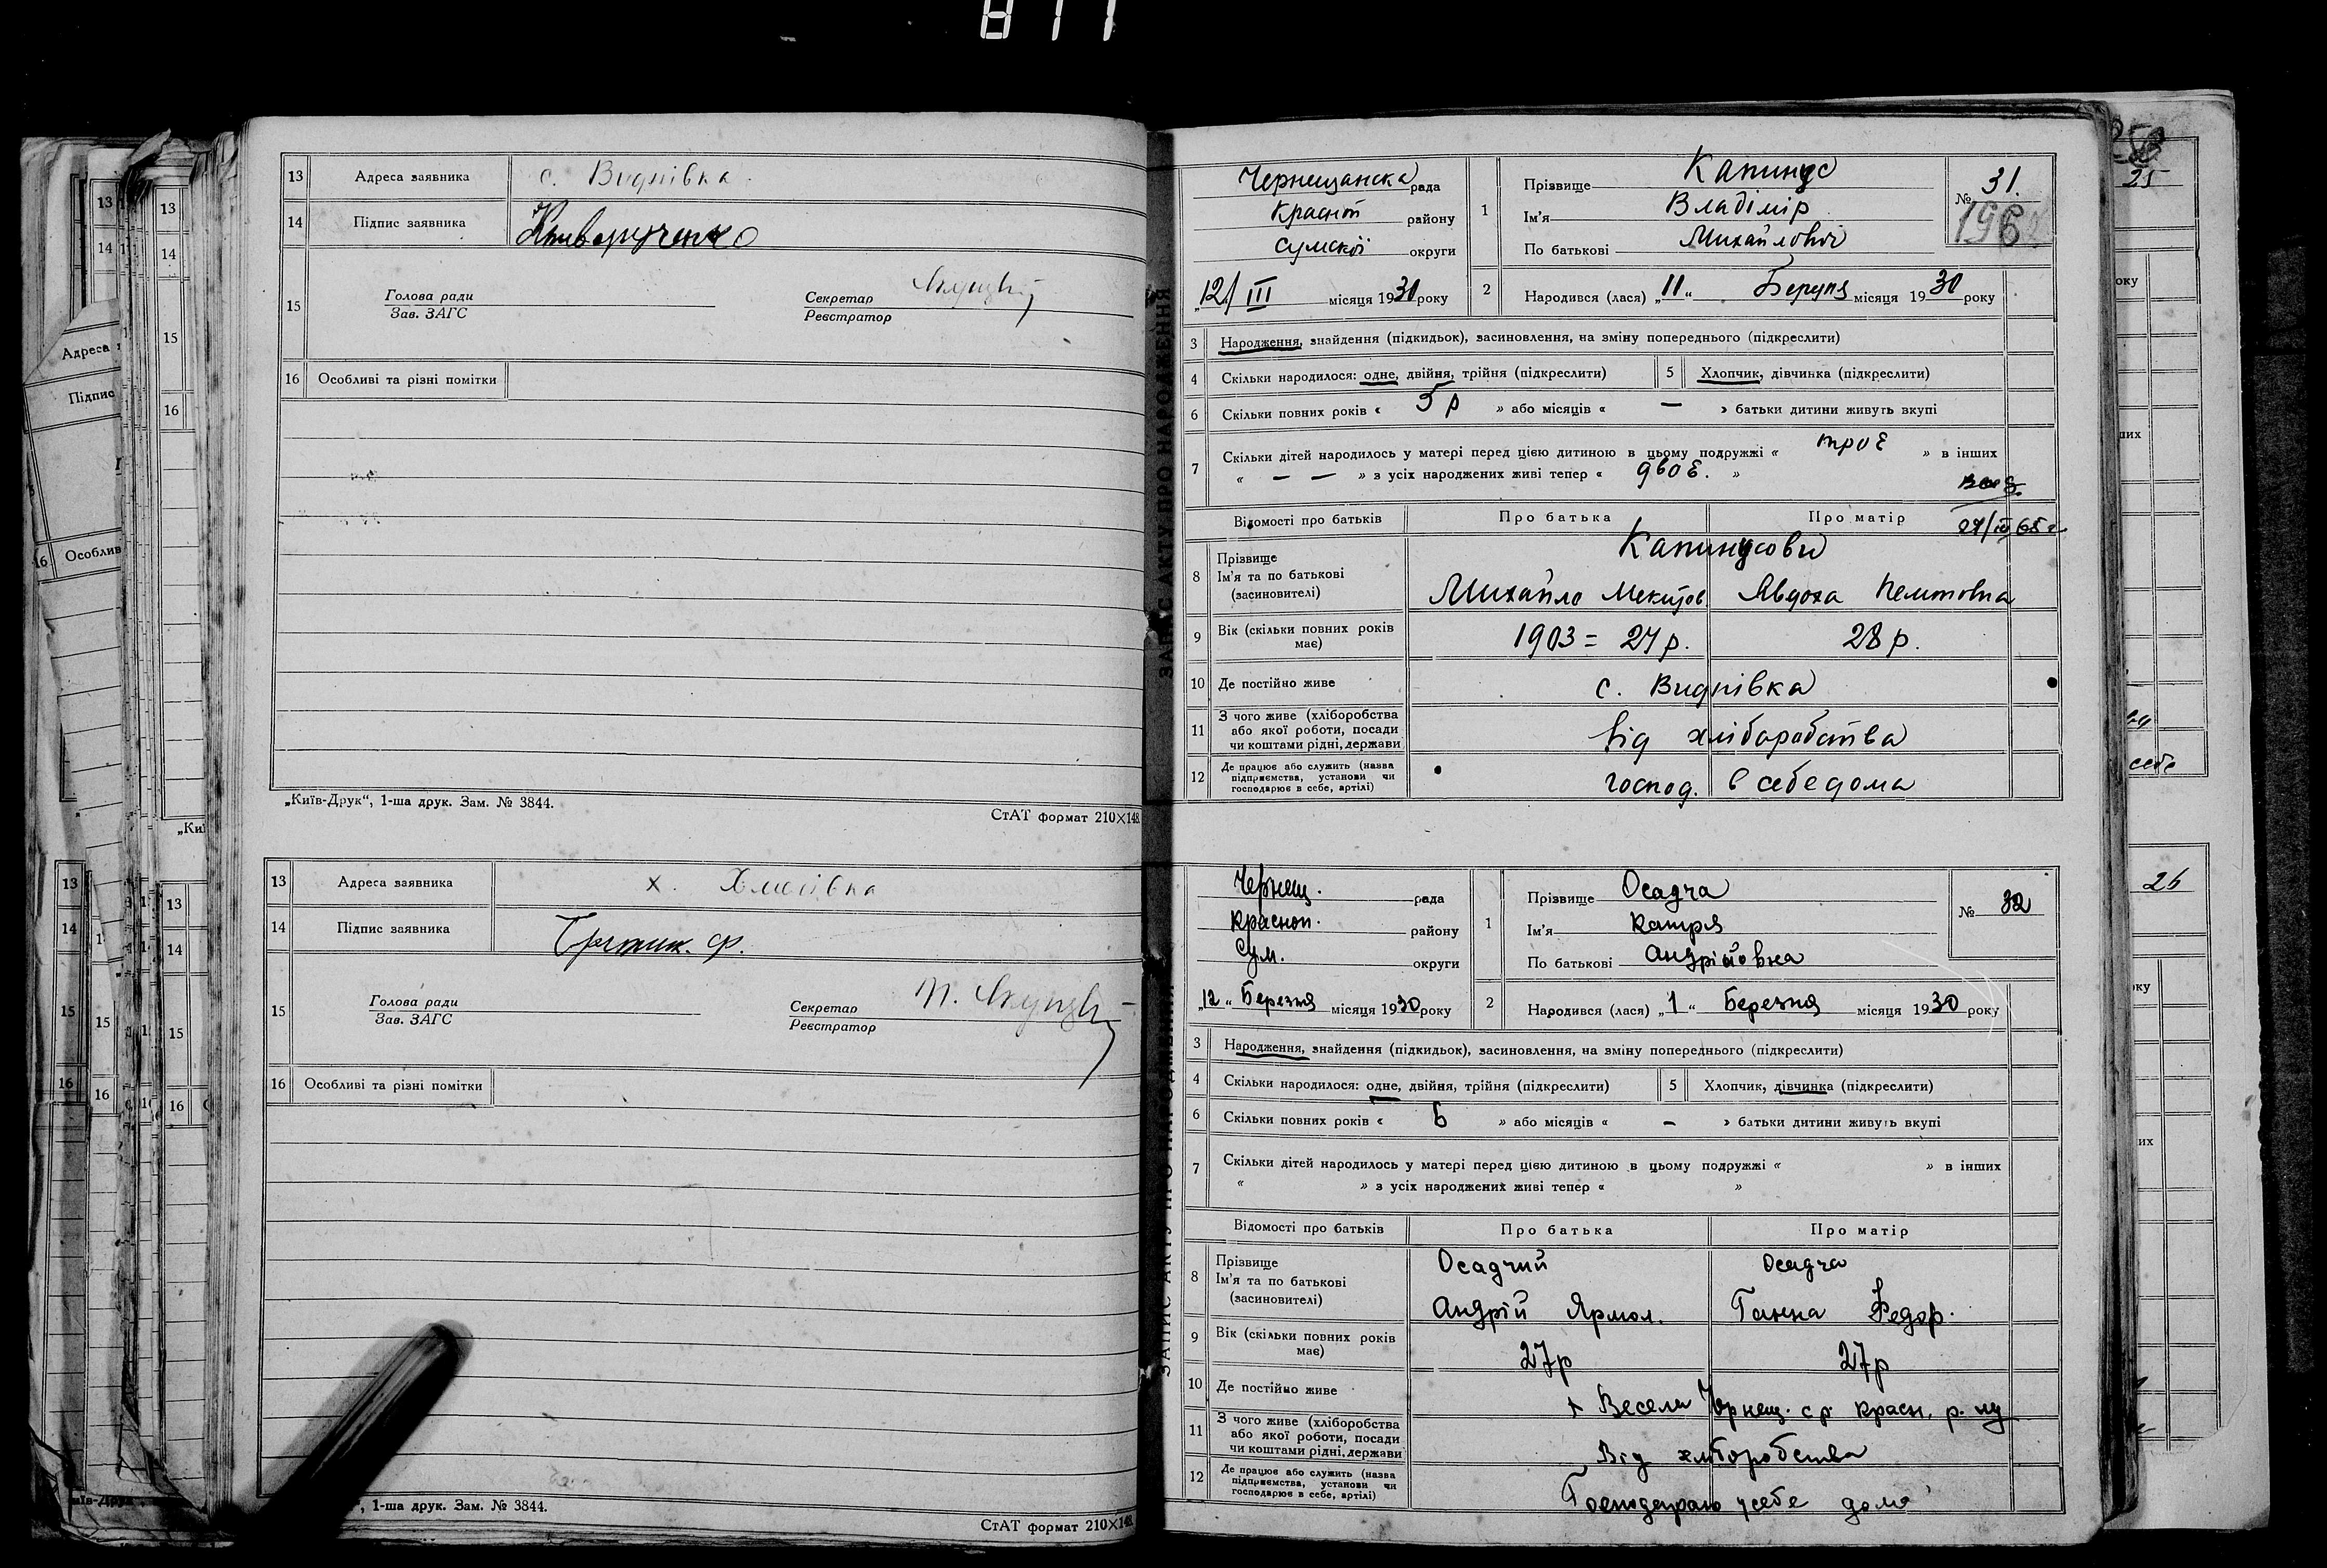 811
13 Адреса заявника с. Видпівка
14 Підпис заявника
15 Голова ради
Зав. ЗАГС
Секретар
Реєстратор
16 Особливі та різні помітки
„Київ-Друк“, 1-ша друк. Зам. № 3844.
СтАТ формат 210×148.
13 Адреса заявника х.
14 Підпис заявника
15 Голова ради
Зав. ЗАГС
Секретар
Реєстратор
16 Особливі та різні помітки
1-ша друк. Зам. № 3844.
СтАТ формат 210×148.
ЗАПИС АКТУ ПРО НАРОДЖЕННЯ
Чернещанска рада
Красноп району
Сумскої округи
„12/III місяця 1930 року
1 Прізвище Капинус
Ім'я Владімір
По батькові Михайлович
№ 31.
2 Народився (лася) „11“ місяця 1930 року
3 Народження, знайдення (підкидьок), засиновлення, на зміну попереднього (підкреслити)
4 Скільки народилося: одне, двійня, трійня (підкреслити)
5 Хлопчик, дівчинка (підкреслити)
6 Скільки повних років « 5 р » або місяців « — » батьки дитини живуть вкупі
7 Скільки дітей народилось у матері перед цією дитиною в цьому подружжі « троє » в інших
« — — » з усіх народжених живі тепер « двоє. »
Відомості про батьків Про батька Про матір
8 Прізвище Капинусови
Ім'я та по батькові
(засиновителі) Михайло Явдоха
9 Вік (скільки повних років має) 1903 = 27 р. 28 р.
10 Де постійно живе с. Видпівка
11 З чого живе (хліборобства
або якої роботи, посади
чи коштами рідні, держави від хліборобства
12 Де працює або служить (назва
підприємства, установи чи
господарює в себе, артілі) господ. в себе дома
ЗАПИС АКТУ ПРО НАРОДЖЕННЯ
Чернещ. рада
Красноп. району
Сум. округи
„12“ Березня місяця 1930 року
1 Прізвище Осадча
Ім'я Катря
По батькові Андрійовна
№ 32
2 Народився (лася) „1“ Березня місяця 1930 року
3 Народження, знайдення (підкидьок), засиновлення, на зміну попереднього (підкреслити)
4 Скільки народилося: одне, двійня, трійня (підкреслити)
5 Хлопчик, дівчинка (підкреслити)
6 Скільки повних років « 6 » або місяців « — » батьки дитини живуть вкупі
7 Скільки дітей народилось у матері перед цією дитиною в цьому подружжі « » в інших
« » з усіх народжених живі тепер « »
Відомості про батьків Про батька Про матір
8 Прізвище Осадчий Осадча
Ім'я та по батькові
(засиновителі) Андрій Ярмол. Ганна Федор.
9 Вік (скільки повних років має) 27р 27р
10 Де постійно живе х Веселе Чернещ. с р. красн. р.
11 З чого живе (хліборобства
або якої роботи, посади
чи коштами рідні, держави Від хліборобства
12 Де працює або служить (назва
підприємства, установи чи
господарює в себе, артілі) Господарюю у себе дома